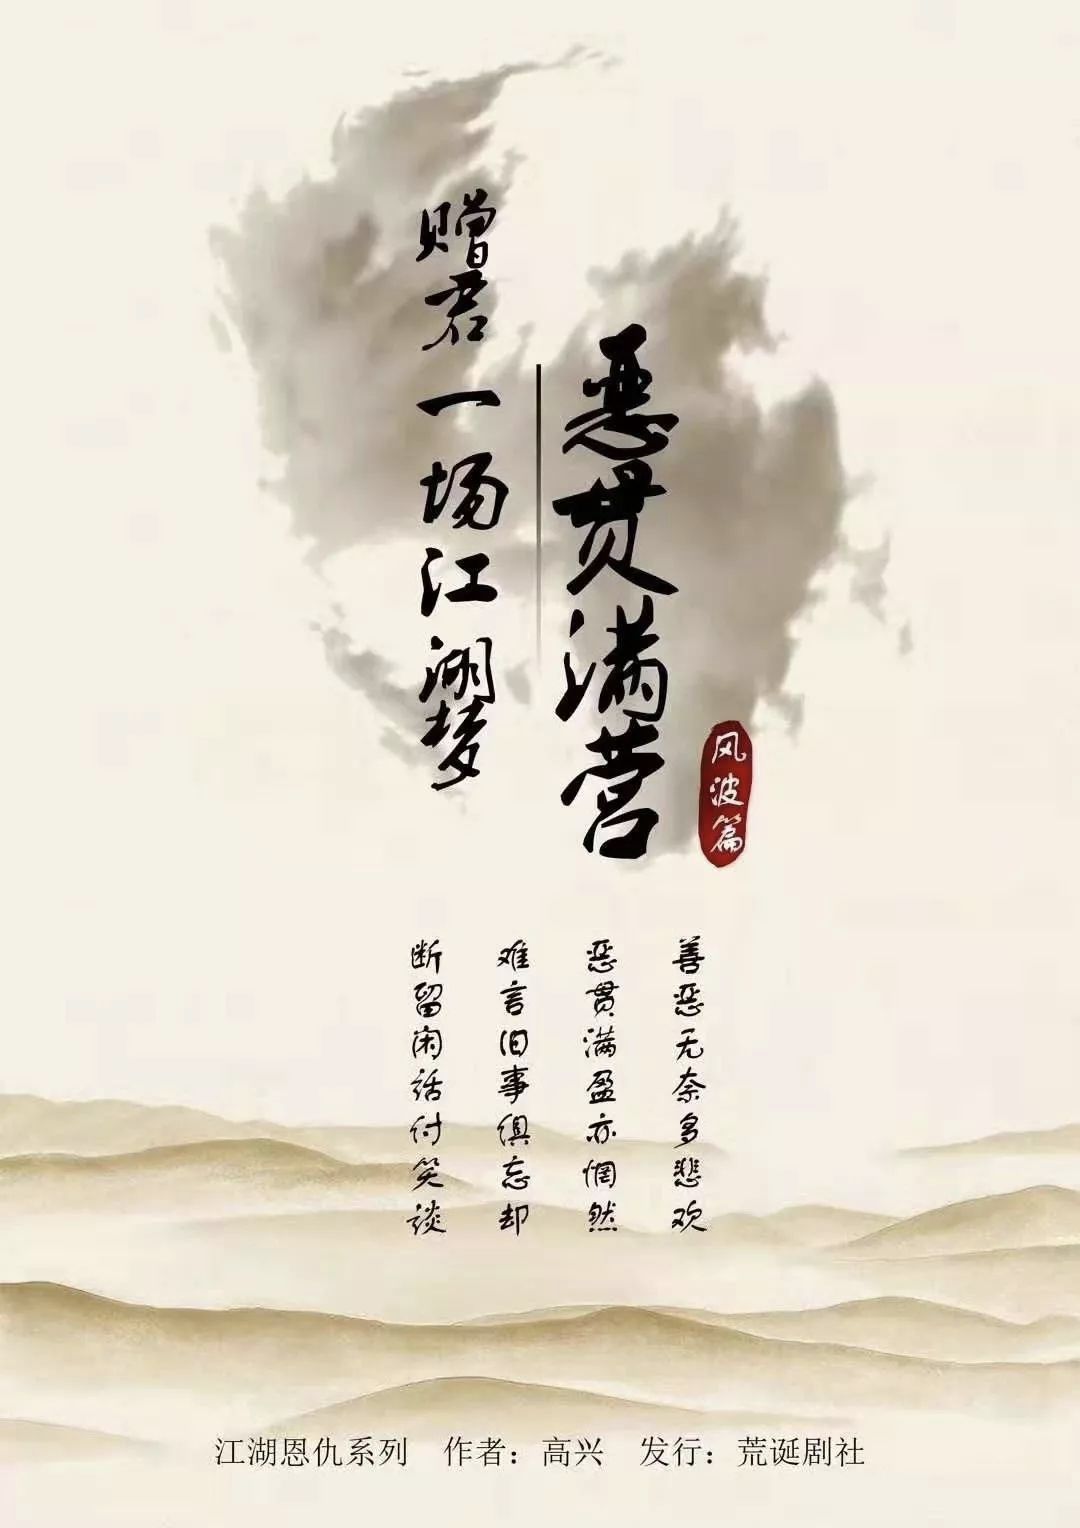 恶贯满营
赠君一场江湖梦
风波篇
善恶无奈多悲欢
恶贯满盈亦惘然
难言旧事俱忘却
断留闲话付笑谈
江湖恩仇系列 作者：高兴 发行：荒诞剧社